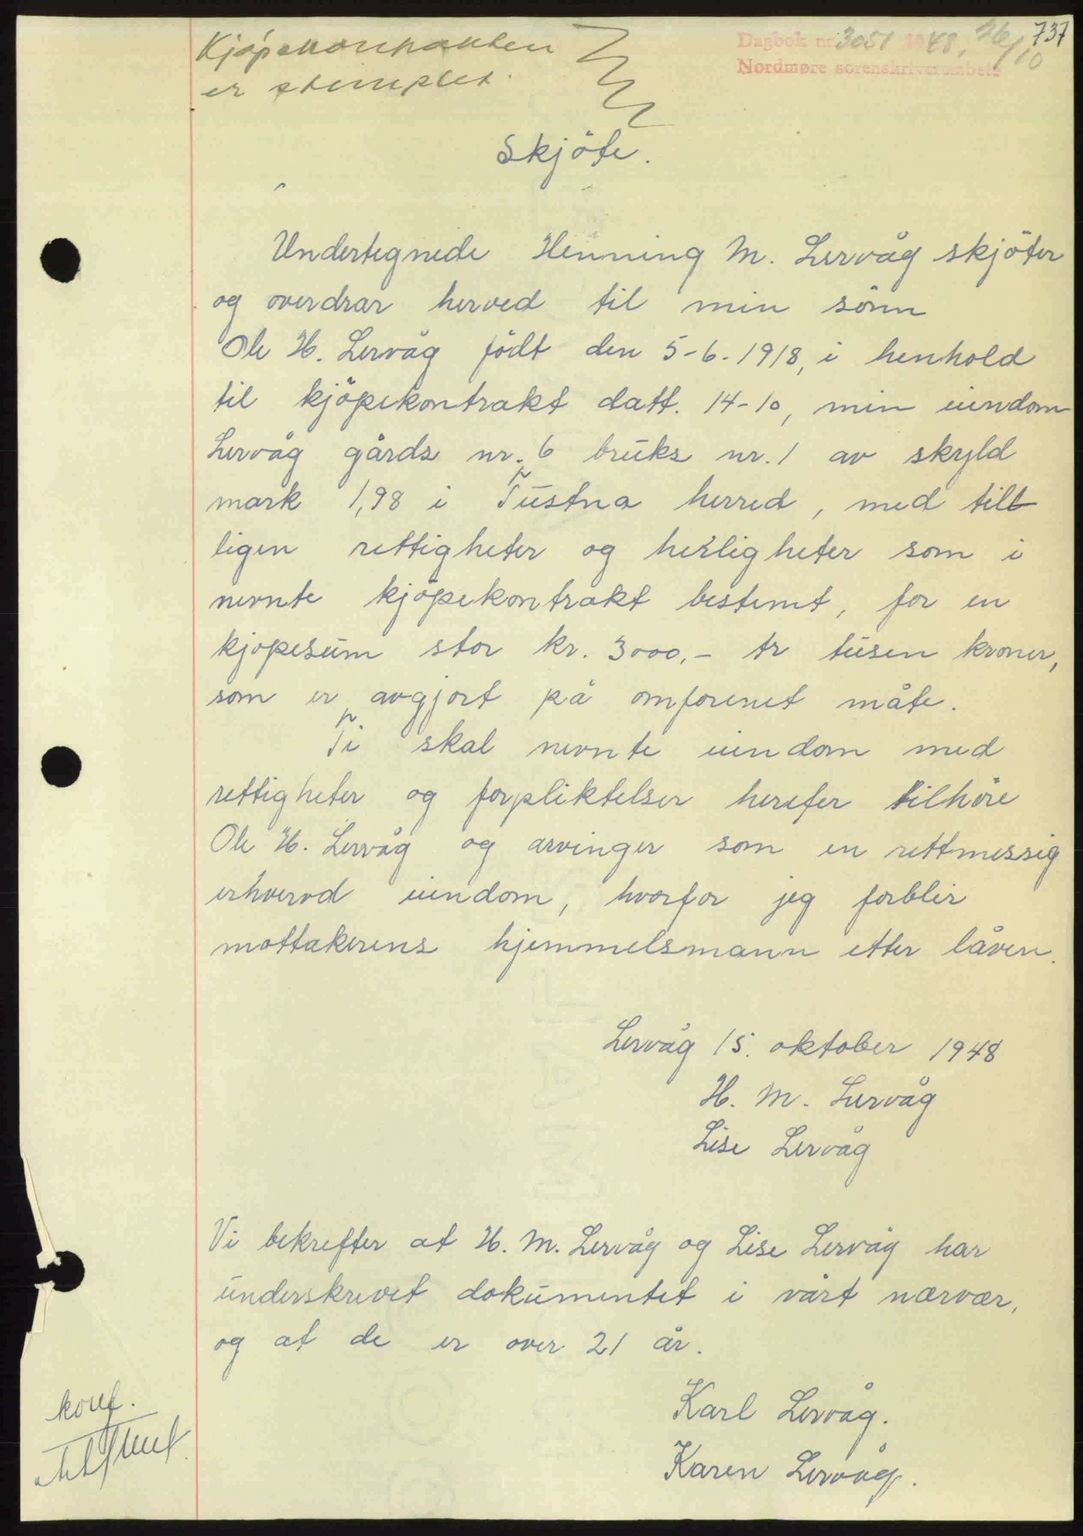 737
Dagbok nr. 3051 1948, 26/10
Nordmøre sorenskriverembete
Kjøpekontrakten
er stemplet.
Skjöte.
Undertegnede Henning M. Lervåg skjöter
og overdrar herved til min sönn
Ole H. Lervåg födt den 5-6-1918, i henhold
til kjöpekontrakt datt. 14-10, min eiendom
Lervåg gårds nr. 6 bruks nr. 1 av skyld
mark 1,98 i Tustna herred, med till
ligen rettigheter og herligheter som i
nevnte kjöpekontrakt bestemt, for en
kjöpesum stor kr. 3000.- tre tusen kroner,
som er avgjort på omforenet måte.
Ti skal nevnte eiendom med
rettigheter og forpliktelser herefer tilhöre
Ole H. Lervåg og arvinger som en rettmessig
erhvervd eiendom, hvorfor jeg forblir
mottakerens hjemmelsmann etter låven.
Lervåg 15. oktober 1948
H. M. Lervåg
Lise Lervåg
Vi bekrefter at H. M. Lervåg og Lise Lervåg har
underskrevet dokumentet i vårt nærvær,
og at de er over 21 år.
Karl Lervåg.
Karen Lervåg.
konf.